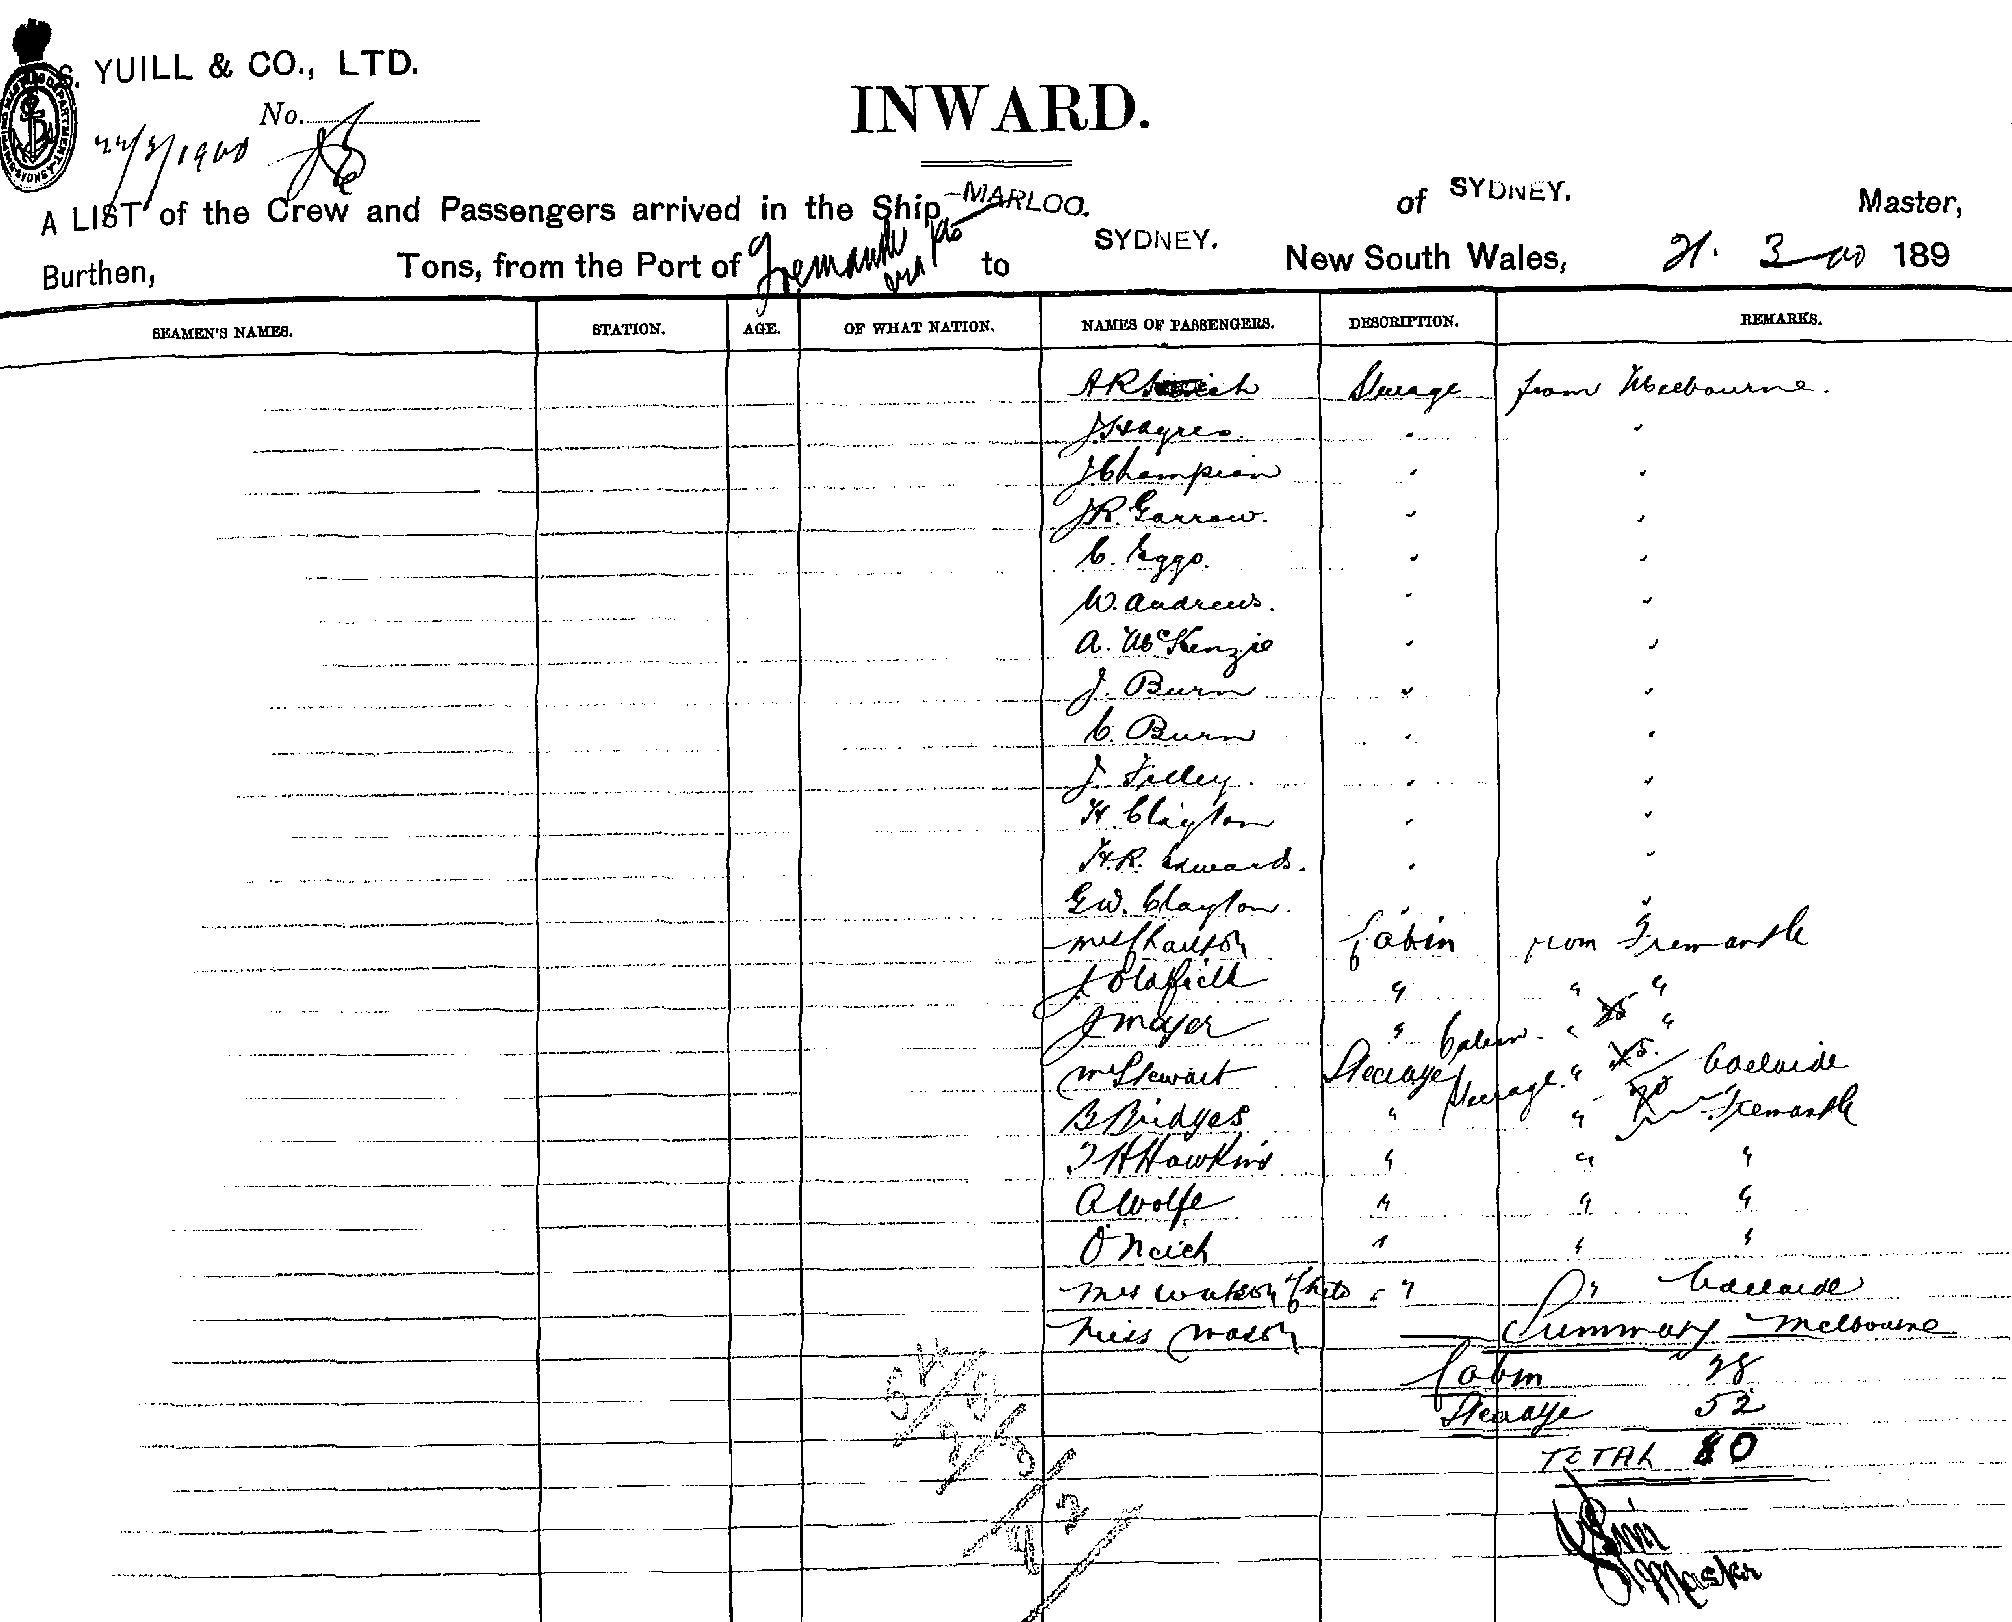 S. YUILL & CO., LTD.
No.
22/3/1900
INWARD.
A LIST of the Crew and Passengers arrived in the Ship MARLOO. of SYDNEY. Master,
Burthen, Tons, from the Port of Fremantle to SYDNEY. New South Wales, 21. 3 00 189
SEAMEN'S NAMES. STATION. AGE. OF WHAT NATION. NAMES OF PASSENGERS. DESCRIPTION. REMARKS.
Steerage from Melbourne.
J Hayres. " "
J Champion " "
J R. Garrow. " "
C. Eggo. " "
W. Andrews. " "
A. McKenzie " "
J. Burn " "
C. Burn " "
J. Tilley. " "
H Clayton " "
H. R. Edwards. " "
G W. Clayton. " "
Cabin from Fremantle
J Oldfield " " "
J Mayer " " "
M Stewart Steerage " Adelaide
B Bridges " " Fremantle
T H Hawkins " " "
A Wolfe " " "
O'Neich " " "
Mrs Watson " " Adelaide
Miss Mason Melbourne
Summary
Cabin 28
Steerage 52
TOTAL 80
Master